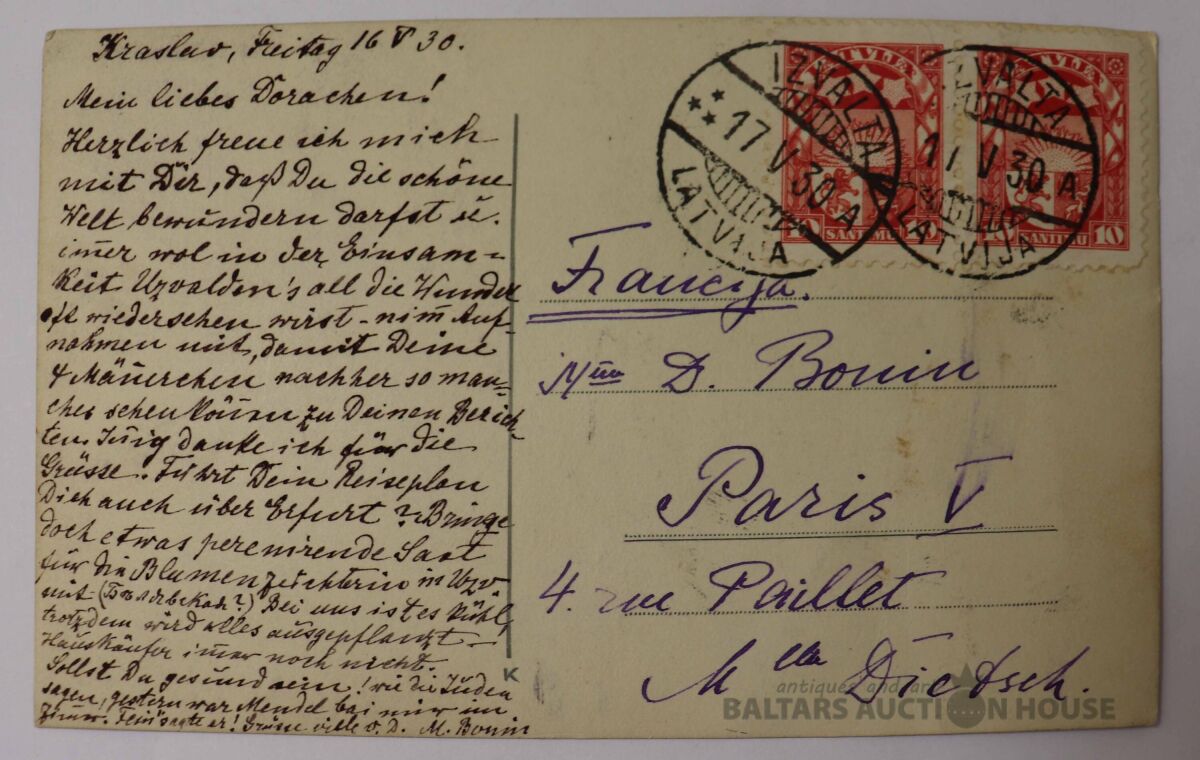 Kraslav, Freitag 16 V 30.
Mein liebes Dorachen!
Herzlich freue ich mich
mit Dir, daß Du die schöne
Welt bewundern darfst u.
im̅er wol in der Einsam-
keit Uzvalden's all die Wunder
oft wiedersehen wirst - nim̅ Auf-
nahmen mit, damit Deine
4 Män̅erchen nachher so man-
ches schen kön̅en zu Deinen Berich-
ten. In̅ig danke ich für die
Grüsse. Führt Dein Reiseplan
Dich auch über Erfurt? Bringe
doch etwas perenirende Saat
für die Blumenzüchterin in Uzv.
mit Bei uns ist es kühl,
trotzdem wird alles ausgepflanzt -
Hauskäufer im̅er noch nicht.
Sollst Du gesund sein! wie die Juden
sagen, gestern war Mendel bei mir im
sagte er! Grüsse v. D. M. Bonin
IZVALTA
17 V 30 A
LATVIJA
IZVALTA
17 V 30 A
LATVIJA
LATVIJA
LATVIJA
10 SANTIMU
SANTIMU 10
Francija.
Mme D. Bonin
Paris V
4. rue Paillet
Mlle Dietsch.
K
antiques and art
BALTARS AUCTION HOUSE